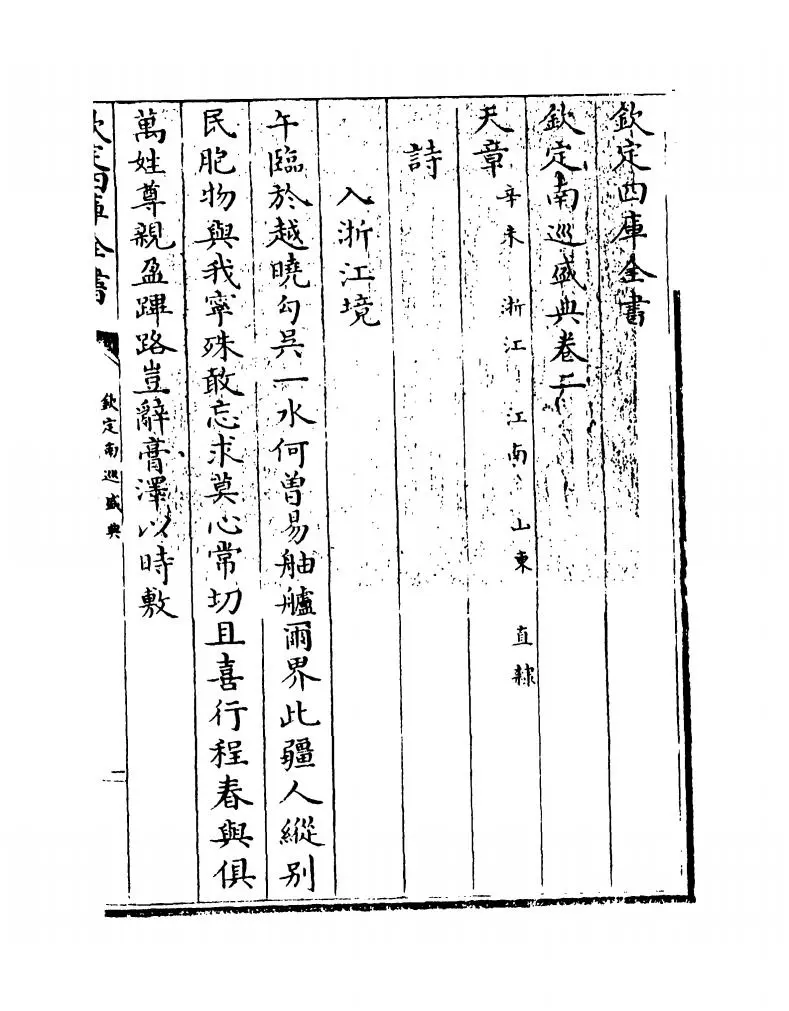 欽定四庫全書
欽定南巡盛典卷二
天章辛未 浙江 江南 山東 直隸
詩
入浙江境
午臨於越曉勾吳一水何曽易舳艫爾界此疆人縱别
民胞物與我寧殊敢忘求莫心常切且喜行程春與俱
萬姓尊親盈蹕路豈辭膏澤以時敷
欽定四庫全書
欽定南巡盛典
一